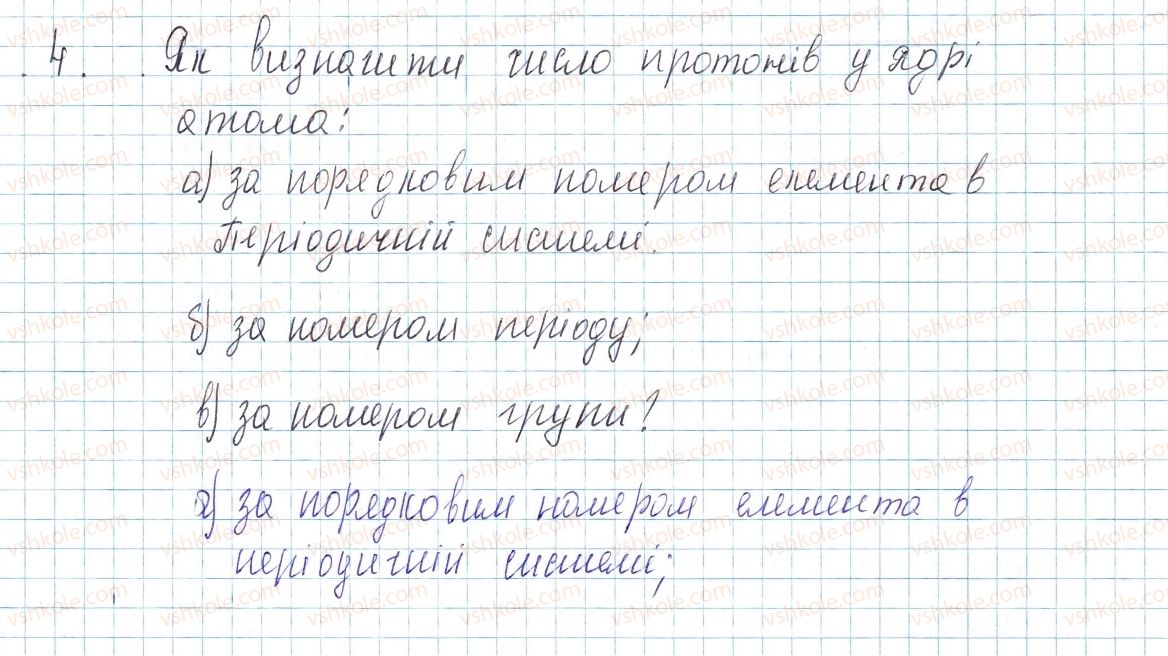 4. Як визначити число протонів у ядрі
атома:
а) за порядковим номером елемента в
Періодичній системі.
б) за номером періоду;
в) за номером групи?
а) за порядковим номером елемента в
періодичній системі;